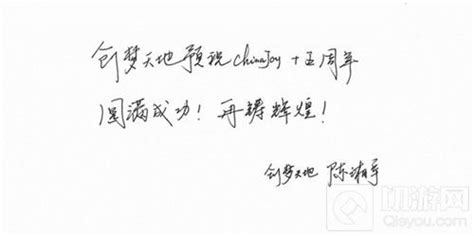 创梦天地预祝ChinaJoy十五周年
圆满成功！再铸辉煌！
创梦天地 陈湘宇
切游网
Qieyou.com